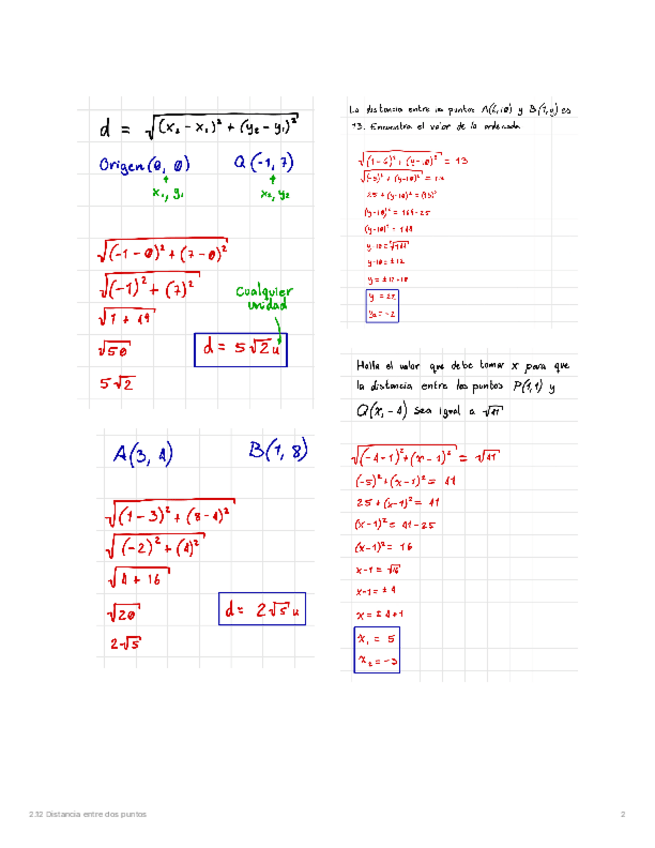 d = √(x₂ - x₁)² + (y₂ - y₁)²
Origen (0, 0) Q (-1, 7)
x₁, y₁ x₂, y₂
√(-1 - 0)² + (7 - 0)²
√(-1)² + (7)²
√1 + 49
√50
5√2
Cualquier
unidad
d = 5√2 u
A(3, 4) B(1, 8)
√(1 - 3)² + (8 - 4)²
√(-2)² + (4)²
√4 + 16
√20
2√5
d = 2√5 u
La distancia entre los puntos A(6,10) y B(1,y) es
13. Encuentra el valor de la ordenada
√(1-6)² + (y-10)² = 13
√(-5)² + (y-10)² = 13
25 + (y-10)² = (13)²
(y-10)² = 169-25
(y-10)² = 144
y-10 = √144
y-10 = ±12
y = ±12+10
y = 22
y₂ = -2
Halla el valor que debe tomar x para que
la distancia entre los puntos P(1,1) y
Q(x, -4) sea igual a √41
√(-4-1)² + (x-1)² = √41
(-5)² + (x-1)² = 41
25 + (x-1)² = 41
(x-1)² = 41-25
(x-1)² = 16
x-1 = √16
x-1 = ± 4
x = ± 4+1
x₁ = 5
x₂ = -3
2.12 Distancia entre dos puntos 2